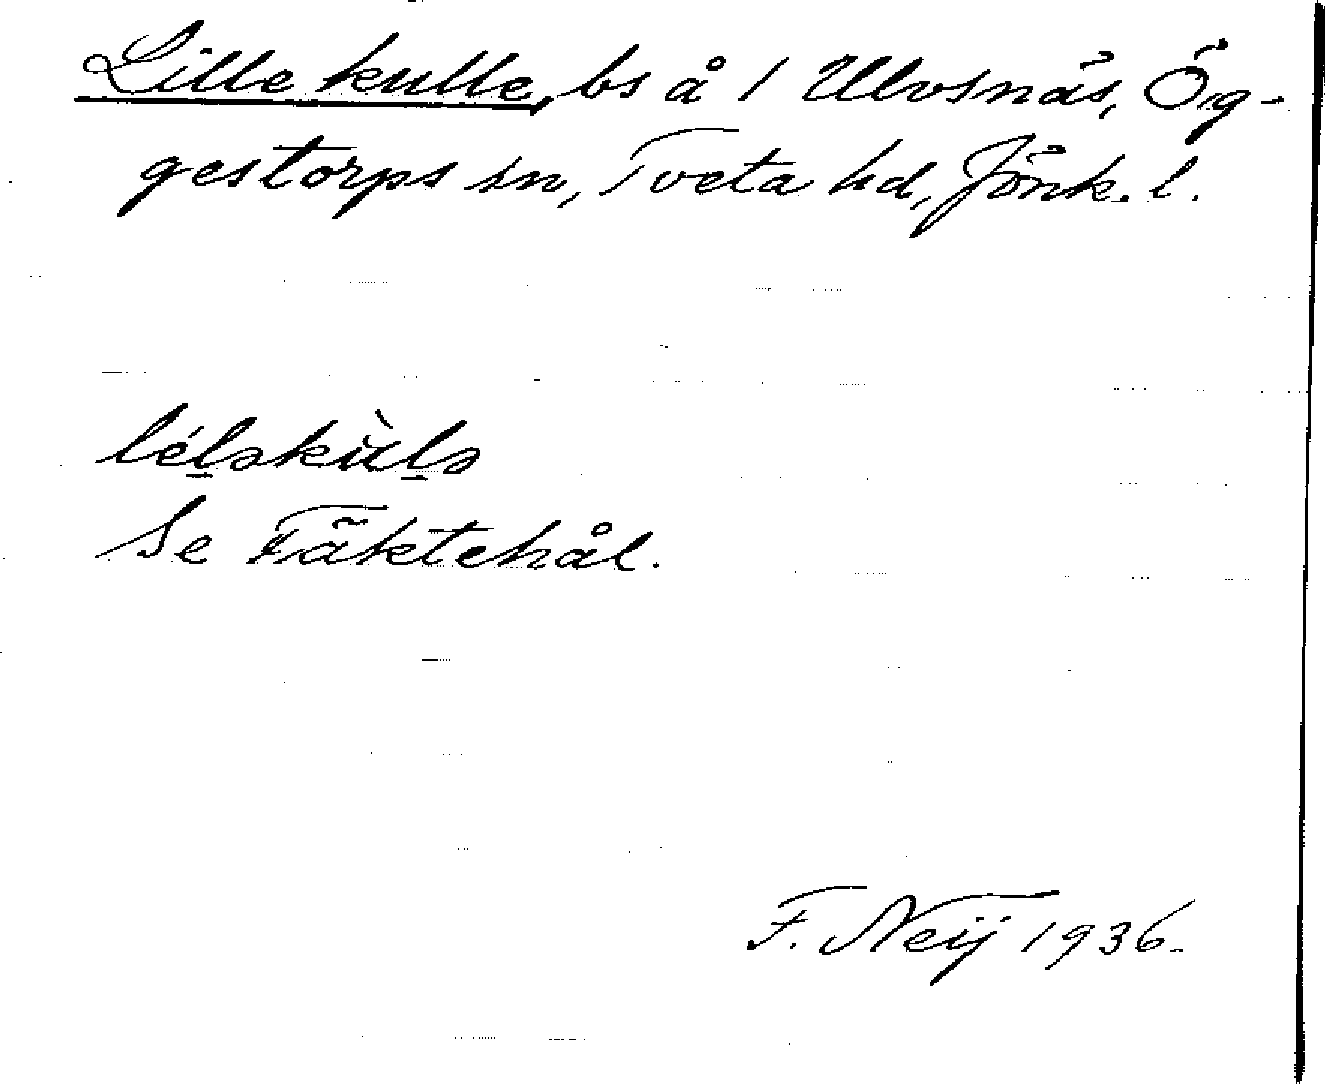 Lille kulle, bs å 1 Ulvsnäs, Ög-
gestorps sn, Tveta hd, Jönk. l.
lél̠əskùl̠ə
Se Fäktehål.
F. Neij 1936.